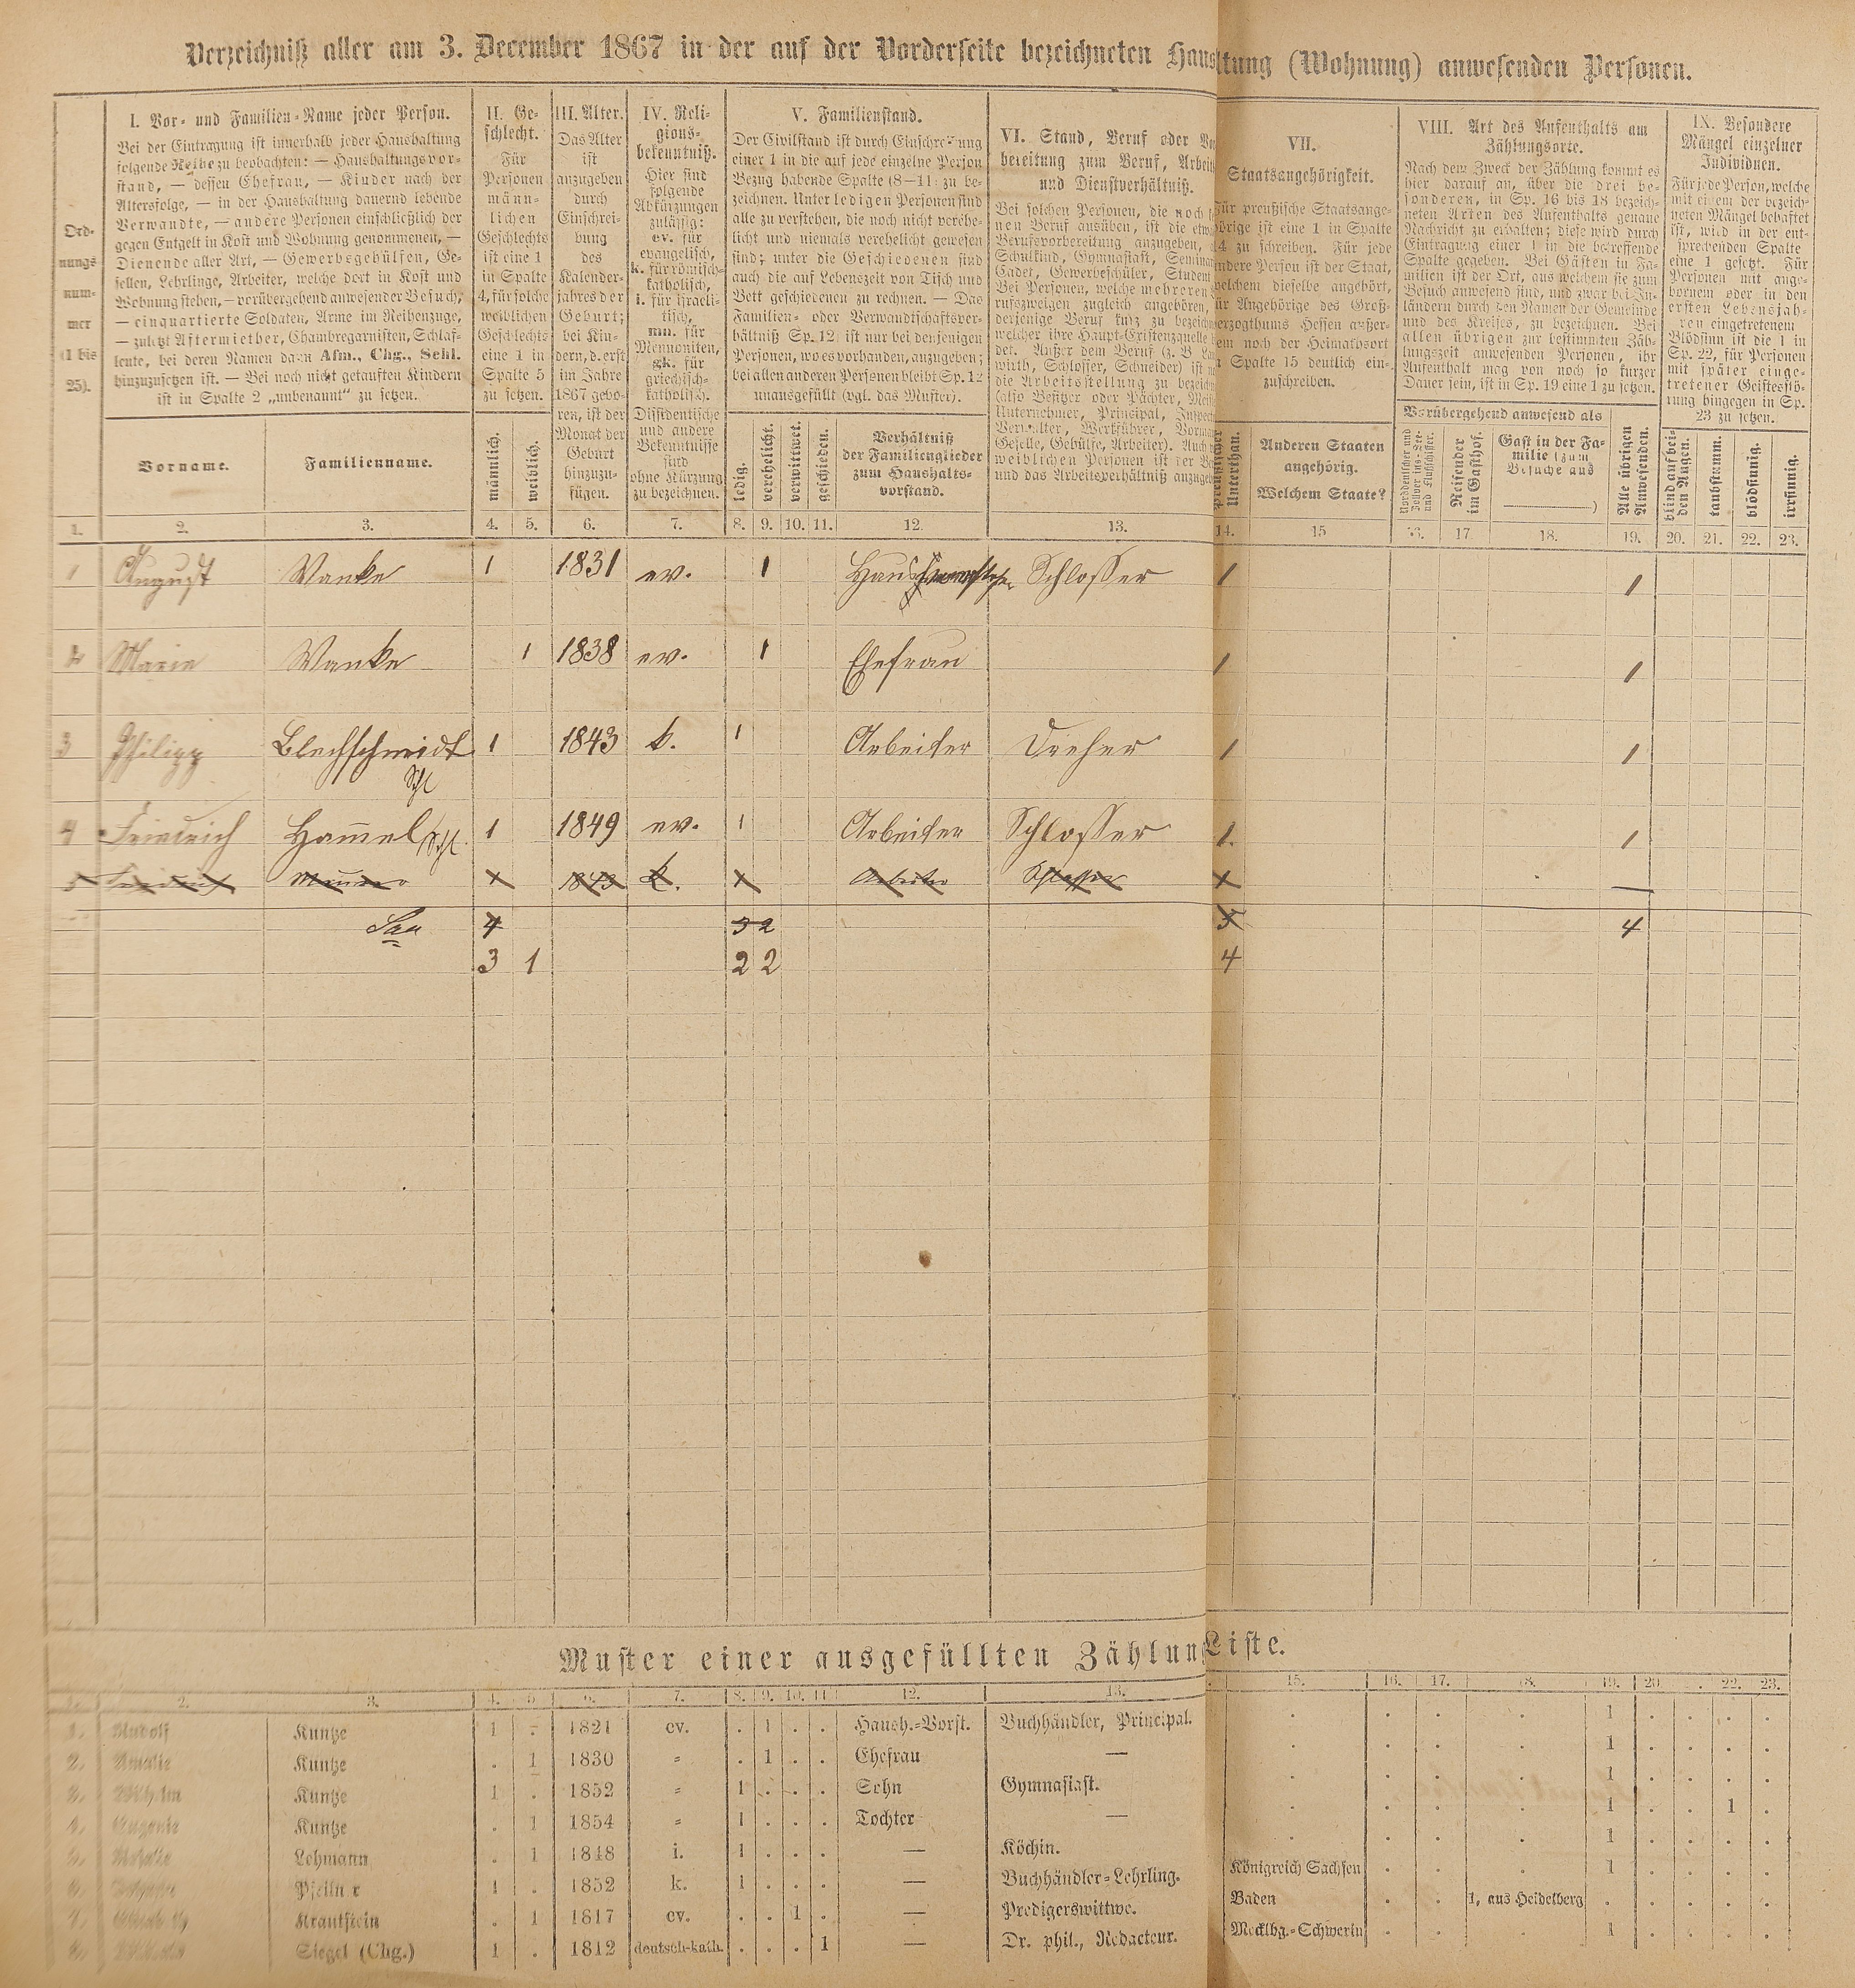 Verzeichniß aller am 3. December 1867 in der auf der Vorderseite bezeichneten Haus ltung (Wohnung) anwesenden Personen.
Ord-
nungs
num-
mer
(1 bis
25).
I. Vor- und Familien-Name jeder Person.
Bei der Eintragung ist innerhalb jeder Haushaltung
folgende Reihe zu beobachten: — Haushaltungsvor-
stand, — dessen Ehefrau, — Kinder nach der
Altersfolge, — in der Haushaltung dauernd lebende
Verwandte, — andere Personen einschließlich der
gegen Entgelt in Kost und Wohnung genommenen, —
Dienende aller Art, — Gewerbegehülfen, Ge-
sellen, Lehrlinge, Arbeiter, welche dort in Kost und
Wohnung stehen, — vorübergehend anwesender Besuch,
— einquartierte Soldaten, Arme im Reihenzuge,
— zuletzt Aftermiether, Chambregarnisten, Schlaf-
leute, bei deren Namen dann Afm., Chg., Schl.
hinzuzusetzen ist. — Bei noch nicht getauften Kindern
ist in Spalte 2 „unbenannt“ zu setzen.
Vorname.
Familienname.
II. Ge-
schlecht.
Für
Personen
männ-
lichen
Geschlechts
ist eine 1
in Spalte
4, für solche
weiblichen
Geschlechts
eine 1 in
Spalte 5
zu setzen.
männlich.
weiblich.
III. Alter.
Das Alter
ist
anzugeben
durch
Einschrei-
bung
des
Kalender-
jahres der
Geburt;
bei Kin-
dern, d. erst
im Jahre
1867 gebo-
ren, ist der
Monat der
Geburt
hinzuzu-
fügen.
IV. Reli-
gions-
bekenntniß.
Hier sind
folgende
Abkürzungen
zulässig:
ev. für
evangelisch,
k. für römisch-
katholisch,
i. für israeli-
tisch,
mn. für
Mennoniten,
gk. für
griechisch-
katholisch.
Dissidentische
und andere
Bekenntnisse
sind
ohne Kürzung
zu bezeichnen.
V. Familienstand.
Der Civilstand ist durch Einschreibung
einer 1 in die auf jede einzelne Person
Bezug habende Spalte (8—11) zu be-
zeichnen. Unter ledigen Personen sind
alle zu verstehen, die noch nicht verehe-
licht und niemals verehelicht gewesen
sind; unter die Geschiedenen sind
auch die auf Lebenszeit von Tisch und
Bett geschiedenen zu rechnen. — Das
Familien- oder Verwandtschaftsver-
hältniß Sp. 12 ist nur bei denjenigen
Personen, wo es vorhanden, anzugeben;
bei allen anderen Personen bleibt Sp. 12
unausgefüllt (vgl. das Muster).
ledig.
verehelicht.
verwittwet.
geschieden.
Verhältniß
der Familienglieder
zum Haushalts-
vorstand.
VI. Stand, Beruf oder Vor
bereitung zum Beruf, Arbeits
und Dienstverhältniß.
Bei solchen Personen, die noch
nen Beruf ausüben, ist die etwa
Berufsvorbereitung anzugeben,
Schulkind, Gymnasiast, Seminar
Cadet, Gewerbeschüler, Student
Bei Personen, welche mehreren
rufszweigen zugleich angehören,
derjenige Beruf kurz zu bezeichn
welcher ihre Haupt-Existenzquelle
det. Außer dem Beruf (z. B. Lan
wirth, Schlosser, Schneider) ist
die Arbeitsstellung zu bezeichn
(also Besitzer oder Pächter, Meist
Unternehmer, Principal, Inspect
Verwalter, Werkführer, Vorman
Geselle, Gehülfe, Arbeiter). Auch
weiblichen Personen ist der Be
und das Arbeitsverhältniß anzugeb
VII.
Staatsangehörigkeit.
Für preußische Staatsange-
hörige ist eine 1 in Spalte
14 zu schreiben. Für jede
andere Person ist der Staat,
welchem dieselbe angehört,
für Angehörige des Groß-
herzogthums Hessen außer-
dem noch der Heimatsort
in Spalte 15 deutlich ein-
zuschreiben.
preußischer
Unterthan.
Anderen Staaten
angehörig.
Welchem Staate?
VIII. Art des Aufenthalts am
Zählungsorte.
Nach dem Zweck der Zählung kommt es
hier darauf an, über die drei be-
sonderen, in Sp. 16 bis 18 bezeich-
neten Arten des Aufenthalts genaue
Nachricht zu erhalten; diese wird durch
Eintragung einer 1 in die betreffende
Spalte gegeben. Bei Gästen in Fa-
milien ist der Ort, aus welchem sie zum
Besuch anwesend sind, und zwar bei In-
ländern durch den Namen der Gemeinde
und des Kreises, zu bezeichnen. Bei
allen übrigen zur bestimmten Zäh-
lungszeit anwesenden Personen, ihr
Aufenthalt mag von noch so kurzer
Dauer sein, ist in Sp. 19 eine 1 zu setzen.
Vorübergehend anwesend als
Norddeutscher und
Zollver.ins-See-
und Flußschiffer.
Reisender
im Gasthof.
Gast in der Fa-
milie (zum
Besuche aus
)
Alle übrigen
Anwesenden.
IX. Besondere
Mängel einzelner
Individuen.
Für jede Person, welche
mit einem der bezeich-
neten Mängel behaftet
ist, wird in der ent-
sprechenden Spalte
eine 1 gesetzt. Für
Personen mit ange-
bornem oder in den
ersten Lebensjah-
ren eingetretenem
Blödsinn ist die 1 in
Sp. 22, für Personen
mit später einge-
tretener Geistesstö-
rung hingegen in Sp.
23 zu setzen.
blind auf bei-
den Augen.
taubstumm.
blödsinnig.
irrsinnig.
1. 2. 3. 4. 5. 6. 7. 8. 9. 10. 11. 12. 13. 14. 15 16. 17 18. 19. 20. 21. 22. 23.
1 August Wanke 1 1831 ev. 1 Haus Schlosser 1 1
2 Marie Wanke 1 1838 ev. 1 Ehefrau 1 1
3 Philipp Blechschmidt 1 1843 k. 1 Arbeiter Dreher 1 1
Schl
4 Friedrich Ham̄el Schl. 1 1849 ev. 1 Arbeiter Schlosser 1. 1
5 Friedrich 1 1843 k. 1 Arbeiter Schlosser 1 —
4 3 2 5 4
3 1 2 2 4
Muster einer ausgefüllten Zählun Liste.
1. 2. 3. 4. 5 6. 7. 8. 9. 10. 11 12. 13. 15. 16. 17. 18. 19. 20. 22. 23.
1. Rudolf Kuntze 1 . 1821 ev. . 1 . . Haush.-Vorst. Buchhändler, Principal. . . . . 1 . . . .
2. Amalie Kuntze . 1 1830 = . 1 . . Ehefrau — . . . . 1 . . . .
3. Wilhelm Kuntze 1 . 1852 = 1 . . . Sohn Gymnasiast. . . . . 1 . . . .
4. Eugenie Kuntze . 1 1854 = 1 . . . Tochter — . . . . 1 . . 1 .
5. Lehmann . 1 1848 i. 1 . . . — Köchin. . . . . 1 . . . .
6. Pfeiln r 1 . 1852 k. 1 . . . — Buchhändler-Lehrling. Königreich Sachsen . . . 1 . . . .
7. Krautstein . 1 1817 ev. . . 1 . — Predigerswittwe. Baden . . 1, aus Heidelberg . . . . .
8. Siegel (Chg.) 1 . 1812 deutsch-kath. . . . 1 — Dr. phil., Redacteur. Mecklbg.-Schwerin . . . 1 . . . .